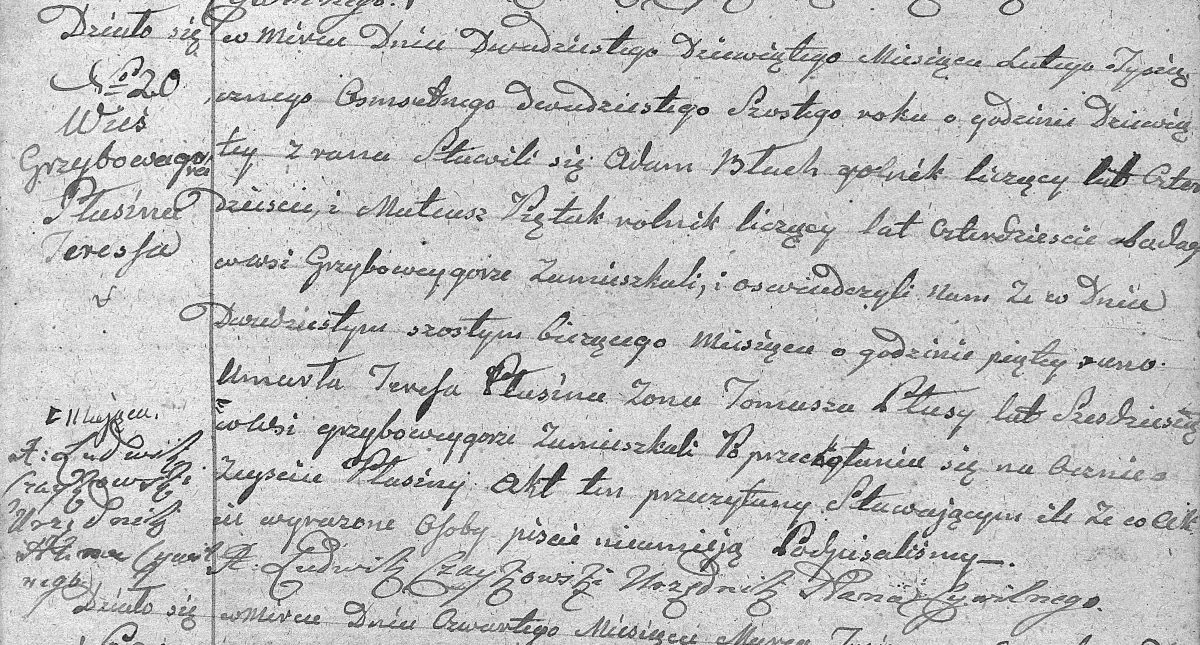 Działo się
No 20
Wieś
Grzybowagora
Płusina
Teressa
w Mircu Dniu Dwudziestego Dziewiątego Miesiąca Lutego Tysią
cznego Osmsetnego dwudziestego Szostego roku o godzinie Dziewią
tey z rana Stawili się Adam Błach rolnik liczący lat Czter
dzieście, i Mateusz Pętak rolnik liczący lat Czterdzieście
w wsi Grzybowcygorze Zamieszkali, i oswiadczyli nam że w Dniu
Dwudziestym szostym bieżącego Miesiąca o godzinie piątey rano
Umarła Teressa Płusina Zona Tomasza Płusy lat Szesdziesiąt
w wsi grzybowcygorze Zamieszkali Po przekonaniu się na ocznie o
Zeyściu Płusiny Akt ten przeczytany Stawającym ile że w Ak
cie wyrazone Osoby pisać nieumieją Podpisaliśmy
A: Ludwik Czaykowski Urzędnik Stanu Cywilnego.
Mająca.
A: Ludwik
Czaykowski
Urzędnik
Stanu Cywil
nego
Działo się
w Mircu Dniu Czwartego Miesiąca Marca